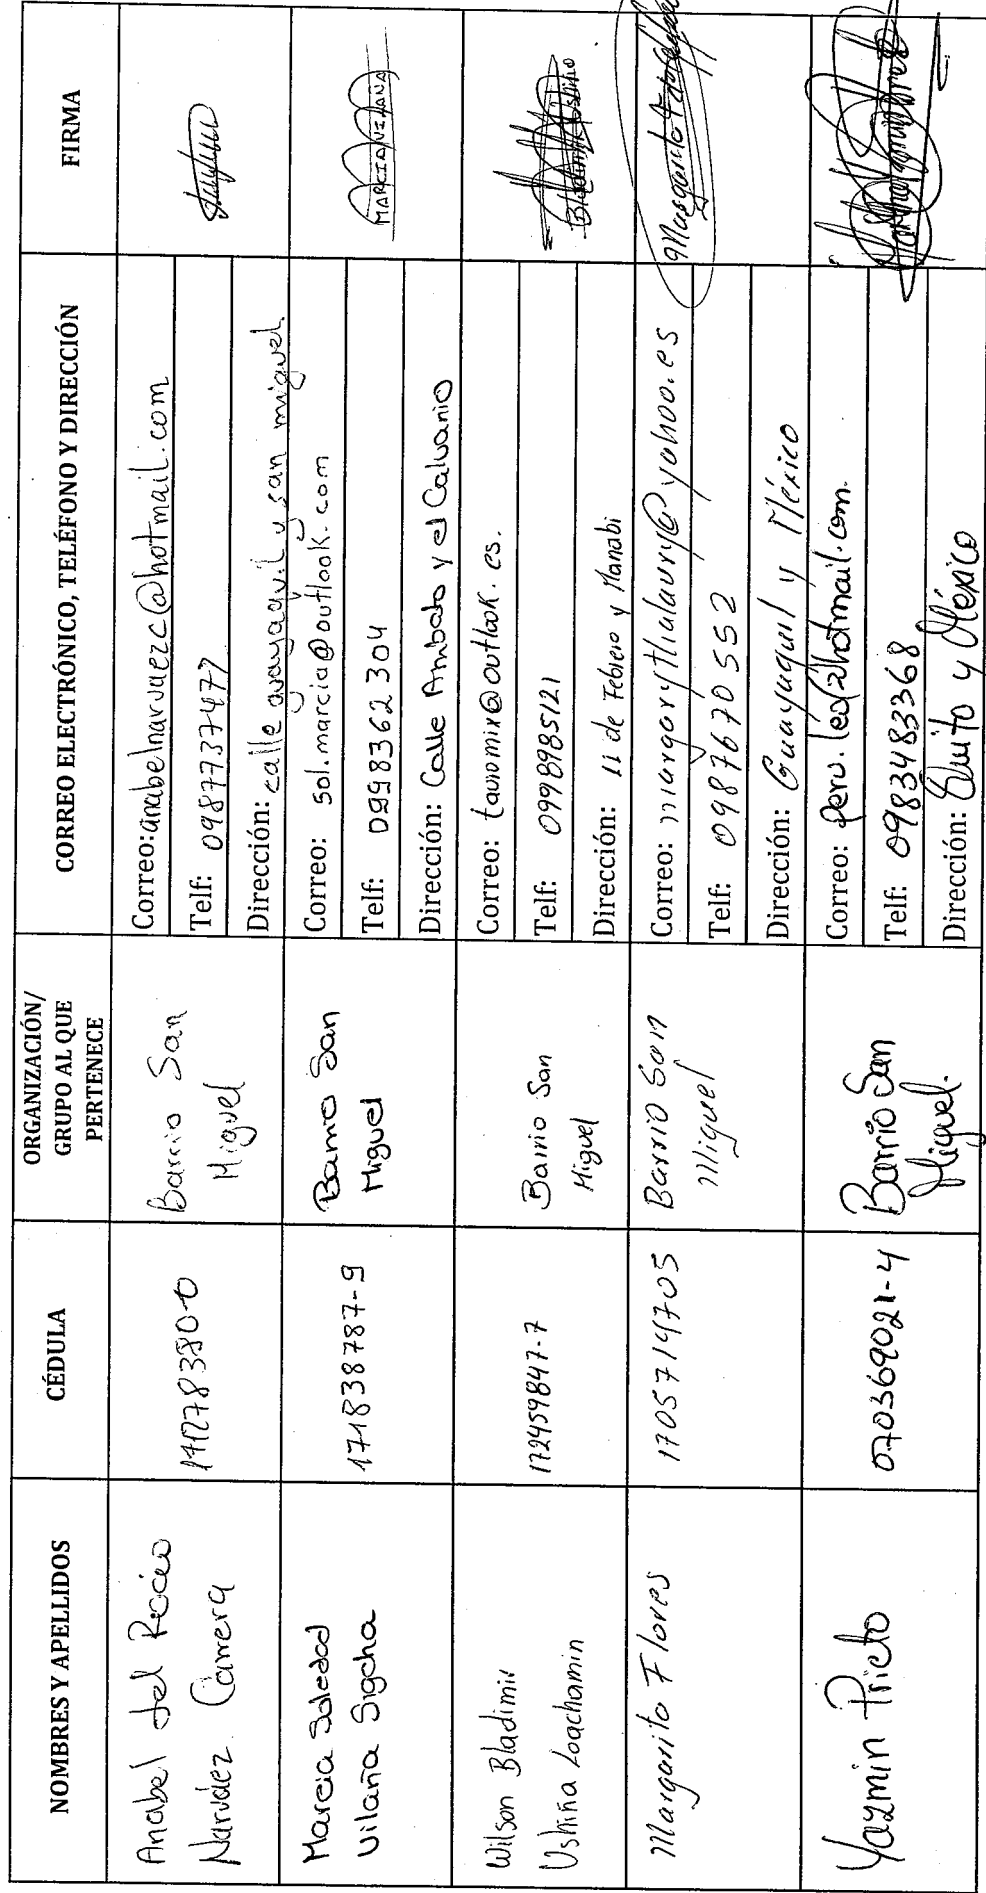 NOMBRES Y APELLIDOS
CÉDULA
ORGANIZACIÓN/
GRUPO AL QUE
PERTENECE
CORREO ELECTRÓNICO, TELÉFONO Y DIRECCIÓN
FIRMA
Anabel del Rocio
Narváez Carrera
171278380-0
Barrio San
Miguel
Correo: anabelnarvaezc@hotmail.com
Telf: 0987737477
Dirección: calle guayaquil y san miguel
Marcia Soledad
Vilaña Sigcha
171838787-9
Barrio San
Miguel
Correo: sol.marcia@outlook.com
Telf: 0998362304
Dirección: Calle Ambato y el Calvario
MARCIA VILAÑA
Wilson Bladimir
Ushiña Loachamin
172459847-7
Barrio San
Miguel
Correo: tauromix@outlook.es.
Telf: 0998985121
Dirección: 11 de Febrero y Manabi
Bladimir Ushiña
Margarita Flores
1705714705
Barrio San
Miguel
Correo: margorytlalaury@yahoo.es
Telf: 0987670552
Dirección: Guayaquil y México
Yazmin Prieto
070369021-4
Barrio San
Miguel.
Correo: peru.leo@hotmail.com.
Telf: 0983483368
Dirección: Quito y México